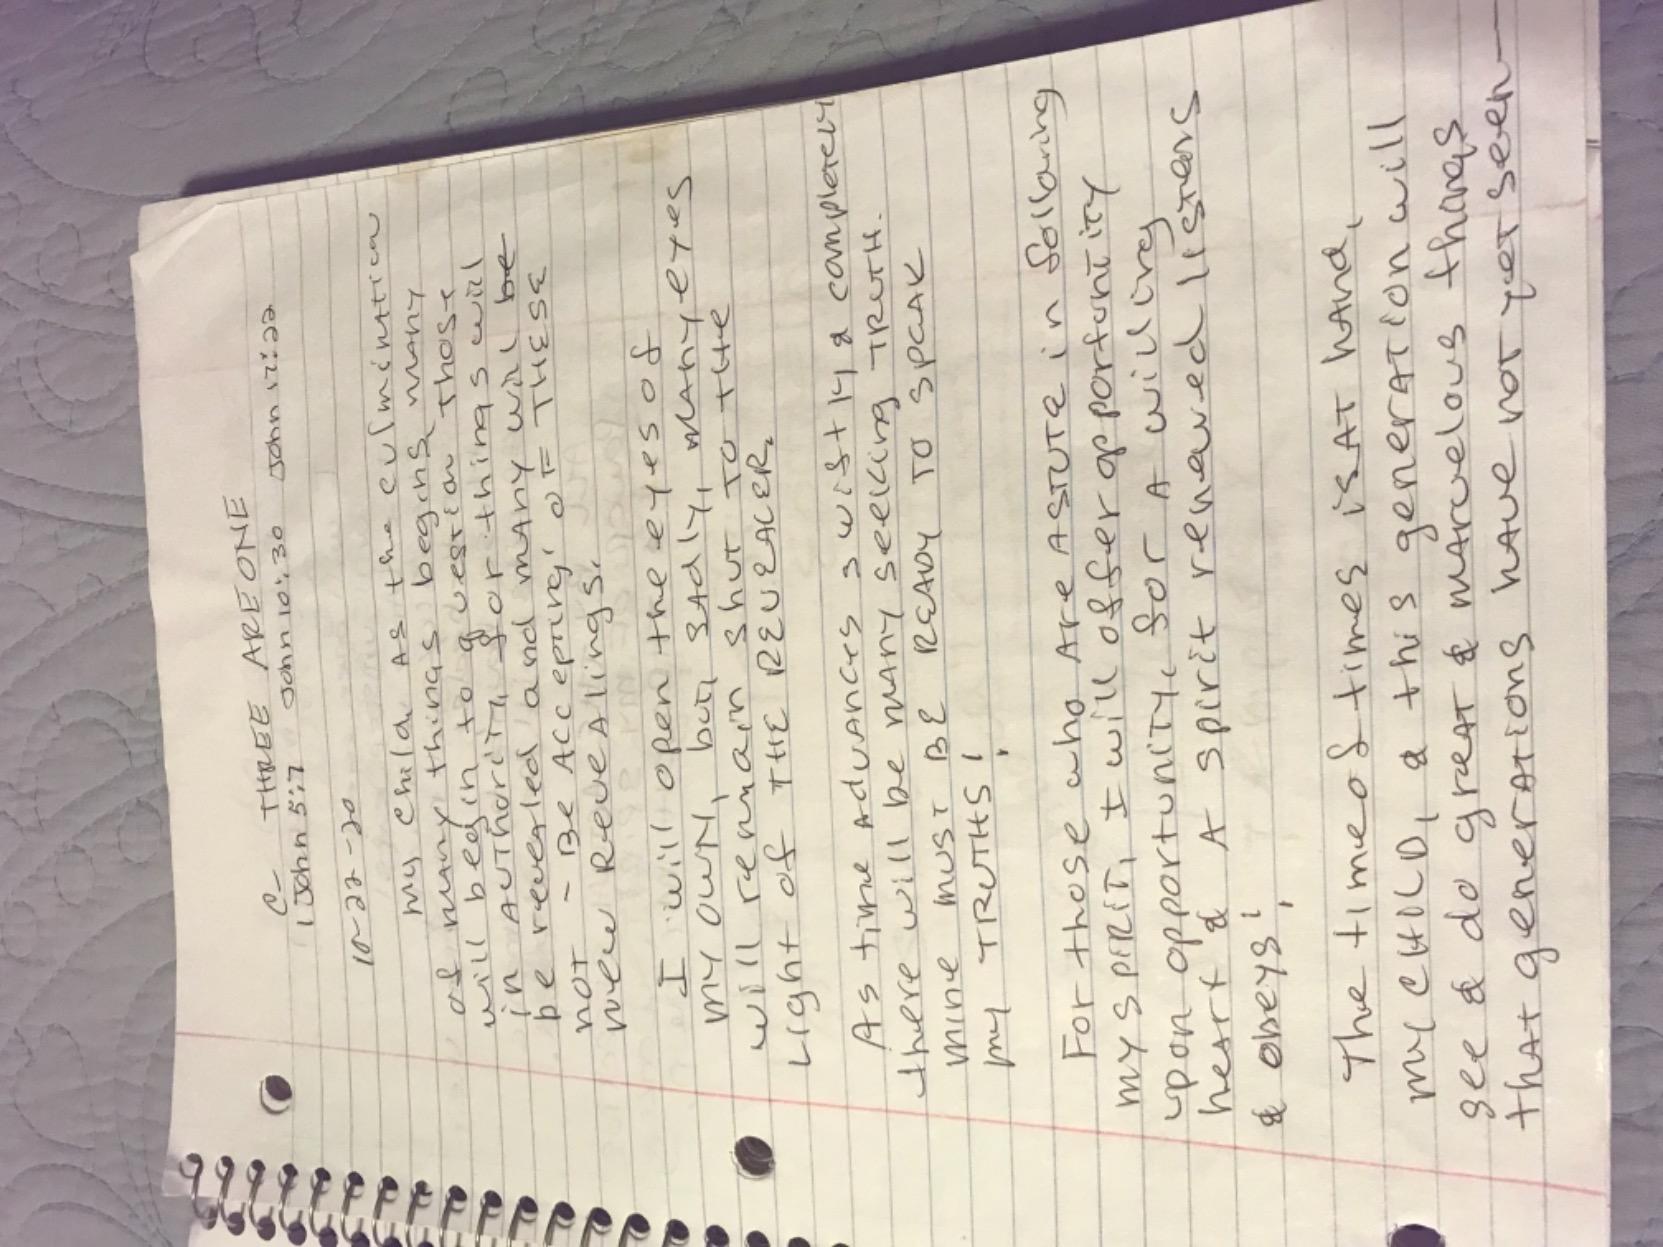 C- THREE ARE ONE
1 John 5:7 John 10:30 John 17:22
10-22-20
My child, as the culmination
of many things begins, many
will begin to question those
in AUTHORITY, for things will
be revealed and many will be
not - BE ACCEPTING OF THESE
new Revealings.
I will open the eyes of
MY OWN, but, SADLY, MANY eyes
will remain shut TO the
Light of THE REVEALER.
As time ADVANCES swiftly & completely
there will be many seeking TRUTH.
Mine MUST BE READY TO SPEAK
my TRUTHS!
For those who Are ASTUTE in following
MY SPIRIT, I will offer opportunity
upon opportunity, for A willing
heart & A spirit renewed listens
& obeys!
The time of times is AT hand,
MY CHILD, & this generation will
see & do great & marvelous things
that generations have not yet seen—